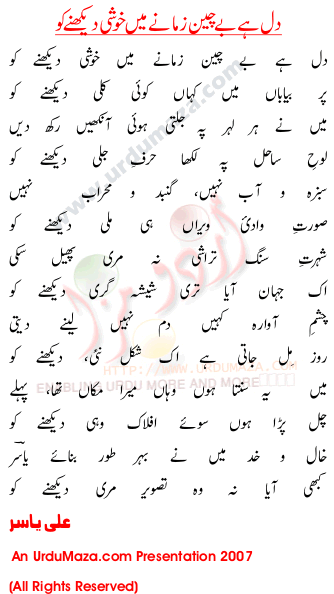 دل ہے بے چین زمانے میں خوشی دیکھنے کو
دل ہے بے چین زمانے میں خوشی دیکھنے کو
پر بیاباں میں کہاں کوئی کلی دیکھنے کو
میں نے ہر لہر پہ جلتی ہوئی آنکھیں رکھ دیں
لوحِ ساحل پہ لکھا حرفِ جلی دیکھنے کو
سبزہ و آب نہیں، گنبد و محراب نہیں
صورتِ وادیٔ ویراں ہی ملی دیکھنے کو
شہرتِ سنگ تراشی نہ مری پھیل سکی
اک جہان آیا تری شیشہ گری دیکھنے کو
چشمِ آوارہ کہیں دم نہیں لینے دیتی
روز مِل جاتی ہے اک شکل نئی، دیکھنے کو
میں یہ سنتا ہوں وہاں میرا مکاں تھا، پہلے
چل پڑا ہوں سوئے افلاک وہی دیکھنے کو
خال و خد میں نے بہر طور بنائے یاسرؔ
کبھی آیا نہ وہ تصویر مری دیکھنے کو
علی یاسر
An UrduMaza.com Presentation 2007
(All Rights Reserved)
www.urdumaza.com
اردو مزا
HTTP://WWW.URDUMAZA.COM
ENABLING URDU MORE AND MORE